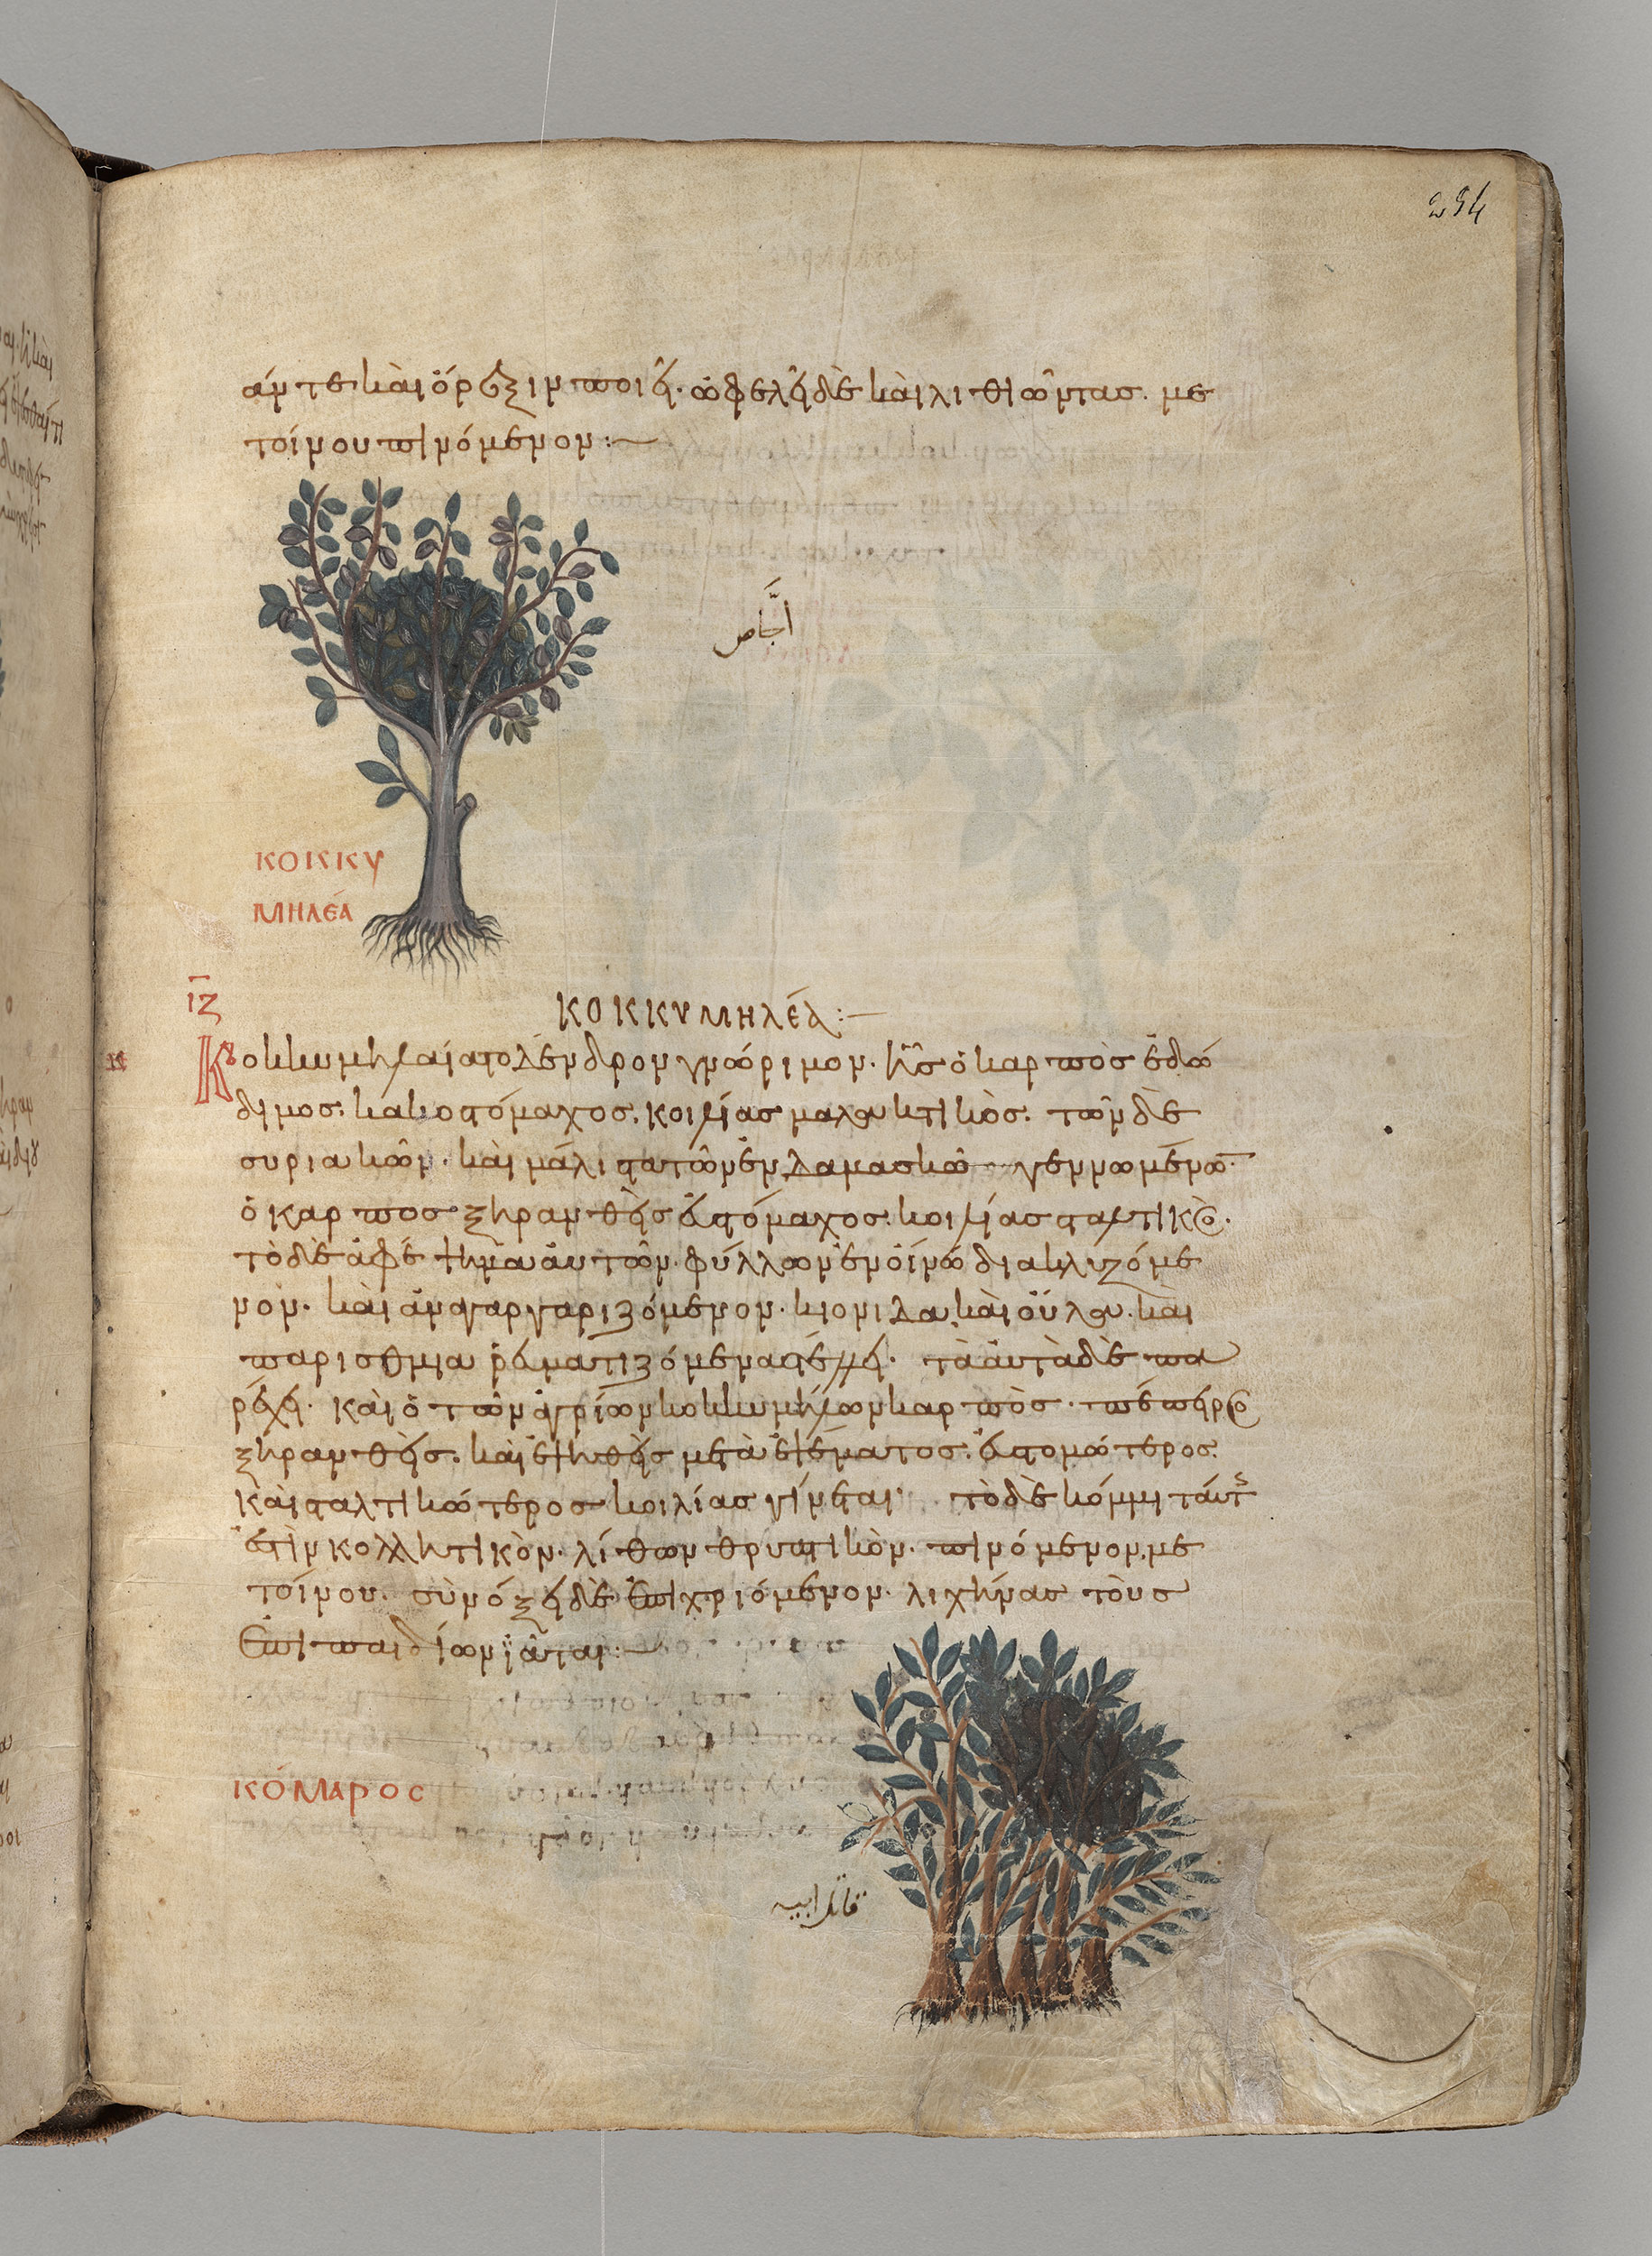 254
άν τε καὶ ὄρεξιν ποιεῖ· ὠφελεῖ δὲ καὶ λιθιῶντας· με
τοίνου πινόμενον:—
اجّاص
ΚΟΚΚΥ
ΜΗΛΈΑ
ιζ
ΚΟΚΚΥΜΗΛΈΑ:—
Κοκκυμηλαία τὸ δένδρον γνώριμον· ἧς ὁ καρπὸς ἐδώ
διμος· κακοστόμαχος· κοιλίας μαλακτικὸς· τῶν δὲ
συριακῶν· καὶ μάλιστα τῶν ἐν δαμασκῶ γεννωμένω̅·
ὁ καρπος ξηρανθεὶς εὐστόμαχος· κοιλίας σταλτικὸς·
τὸ δὲ ἀφέψημα ἀυτῶν φύλλων ἐν οἴνω διακλυζόμε
νον· καὶ ἀναγαργαριζόμενον· κιονιδα καὶ οὖλα· καὶ
παρισθμια ῥευματιζόμενα στέλλει· τὰ ἀυτὰ δὲ πα
ρέχει· καὶ ὁ τῶν ἀγρίων κοκκυμήλων καρπὸς· πέπειρος
ξηρανθεὶς· καὶ ἑψηθεὶς μετὰ ἑψέματος· εὐστομώτερος·
καὶ σταλτικώτερος κοιλίας γίνεται· τὸ δὲ κόμμι ταύτης
ἐστὶν κολλητικὸν· λίθων θρυπτικὸν· πινόμενον με
τοίνου· σὺν ὄξει δὲ ἐπιχριόμενον· λιχῆνας τοὺς
ἐπι παιδίων ἰᾶται:—
ΚΌΜΑΡΟΣ
قاتل ابيه